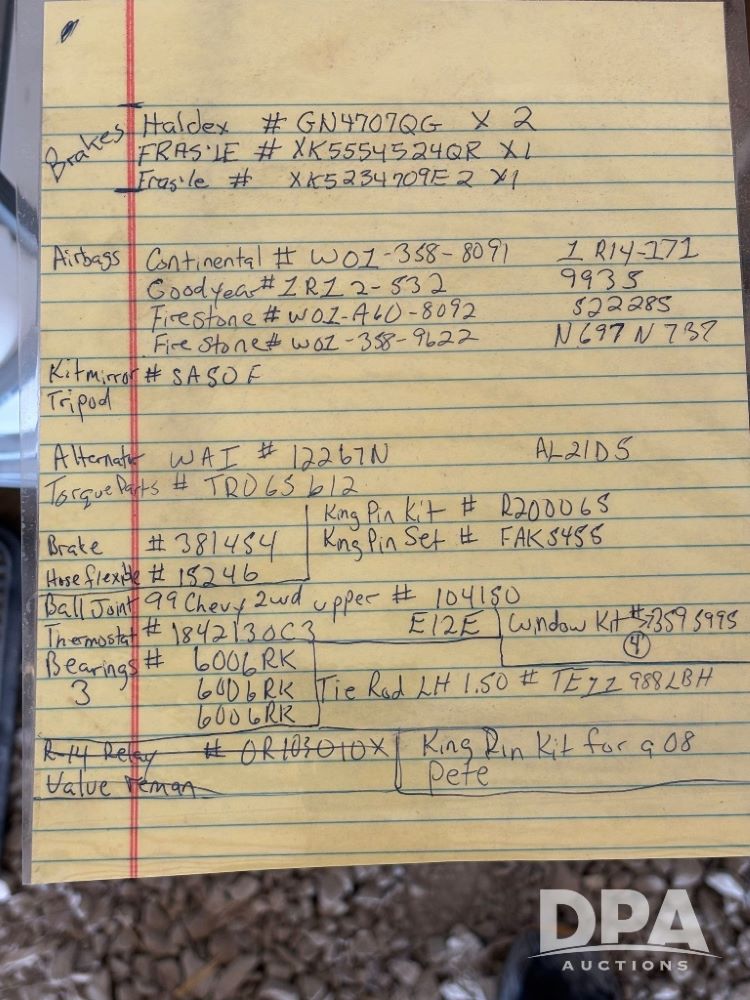 Brakes
Haldex # GN4707QG X 2
FRAS'LE # XK5554524QR X1
Fras'le # XK5234709E2 X1
Airbags Continental # W01-358-8091 1 R14-171
Goodyear # 1R12-532 9935
Firestone # W01-A60-8092 S22285
Firestone # W01-358-9622 N697 N737
Kit mirror # SA50F
Tripod
Alternator WAI # 12267N AL21D5
Torque Parts # TR065612
King Pin Kit # R200065
Brake # 381454 King Pin Set # FAK5455
Hose flexible # 15246
Ball Joint 99 Chevy 2wd upper # 104150
Thermostat # 1842130C3 E12E Window Kit # 73595995
4
Bearings # 6006RK
3 6006RK Tie Rod LH 1.50 # TE71988LBH
6006RK
R-14 Relay # OR103010X King Pin Kit for a 08
Valve reman Pete
DPA
AUCTIONS